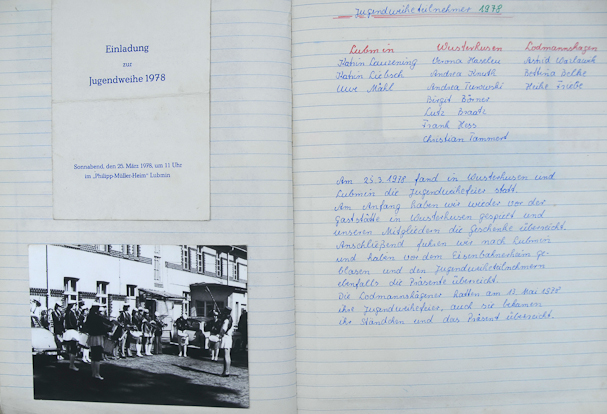 Einladung
zur
Jugendweihe 1978
Sonnabend, den 25. März 1978, um 11 Uhr
im „Philipp-Müller-Heim" Lubmin
Jugendweiheteilnehmer 1978
Lubmin Wusterhusen Lodmannshagen
Katrin Verona Haseleu Astrid
Katrin Liebsch Andrea Knuth Bettina Belke
Uwe Mähl Andrea Heike Friebe
Birgit Börner
Lutz Braatz
Frank Hess
Christian Tammert
Am 25.3.1978 fand in Wusterhusen und
Lubmin die Jugendweihefeier statt.
Am Anfang haben wir wieder vor der
Gaststätte in Wusterhusen gespielt und
unseren Mitgliedern die Geschenke überreicht.
Anschließend fuhren wir nach Lubmin
und haben vor dem Eisenbahnerheim ge-
blasen und den Jugendweiheteilnehmern
ebenfalls die Präsente überreicht.
Die Lodmannshagener hatten am 13. Mai 1978
ihre Jugendweihefeier, auch sie bekamen
ihr Ständchen und das Präsent überreicht.